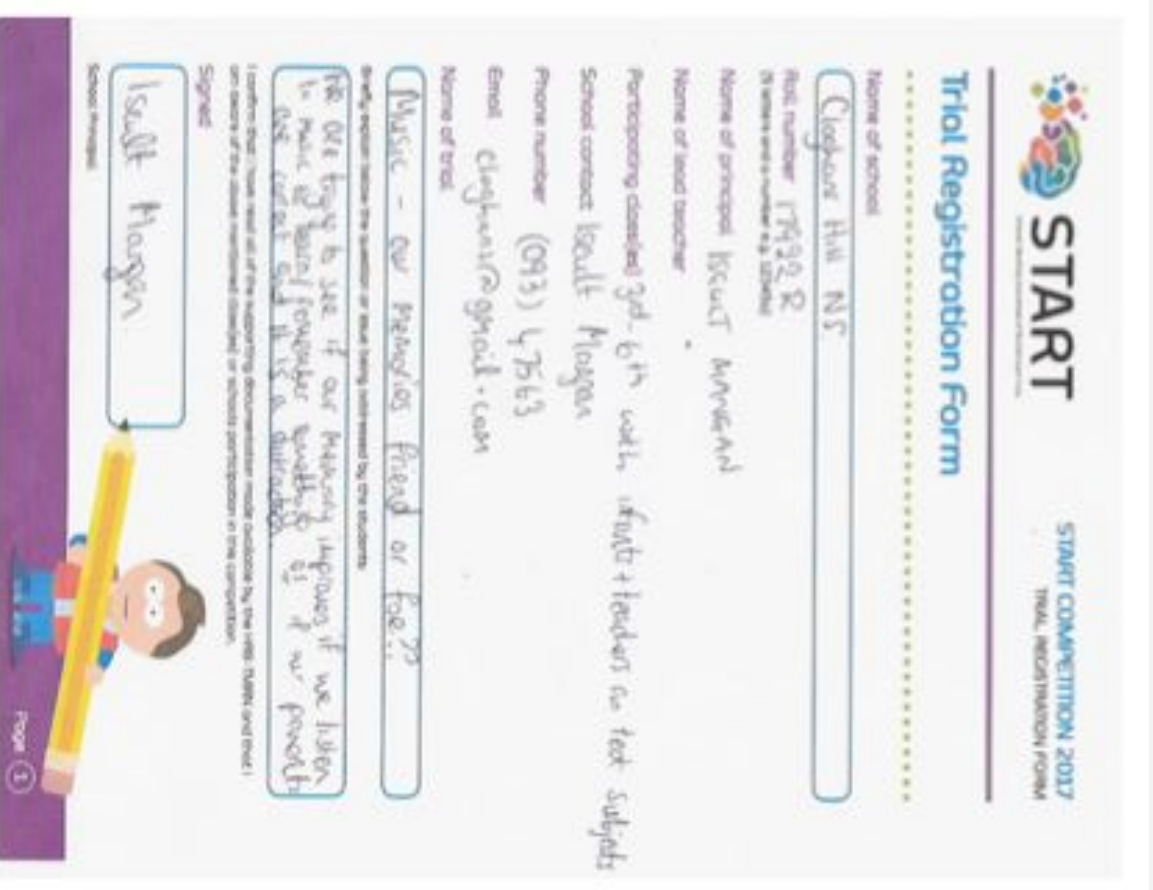 START
START COMPETITION 2017
TRIAL REGISTRATION FORM
Trial Registration Form
Name of school
Cloghans Hill NS
Roll number 17922R
(5 letters and a number e.g. 12345a)
Name of principal ISEULT MANGAN
Name of lead teacher
Participating class(es) 3rd - 6th with infants + teachers as test subjects
School contact Iseult Mangan
Phone number (093) 47563
Email cloghans@gmail.com
Name of trial
Music - our Memories friend or foe??
Briefly explain below the question or issue being addressed by the students
We are trying to see if our memory improves if we listen
to music to learn/remember something or if our parents
are correct and it is a distraction.
I confirm that I have read all of the supporting documentation made available by the HRB-TMRN and that I
am aware of the above mentioned class(es) or schools participation in the competition.
Signed
Iseult Mangan
School Principal
Page 1